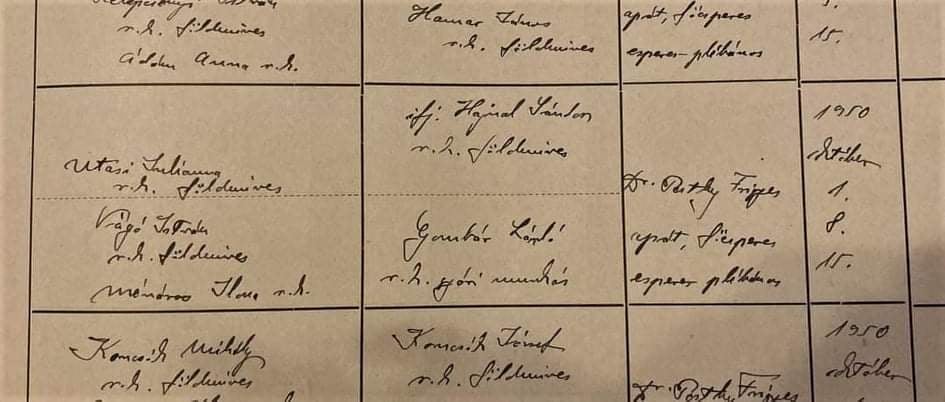 István
r. k. földmíves
Ádám Anna r. k.
Hamar János
r. k. földmíves
apát, főesperes
esperes-plébános
15.
Utasi Julianna
r. k. földmíves
Vágó István
r. k. földmíves
Mészáros Ilona r. k.
ifj. Hajnal Sándor
r. k. földmíves
Gombár László
r. k. gyári munkás
Dr. Frigyes
apát, főesperes
esperes plébános
1950
október
1.
8.
15.
Koncsik Mihály
r. k. földmíves
Koncsik József
r. k. földmíves
Dr. Frigyes
1950
október